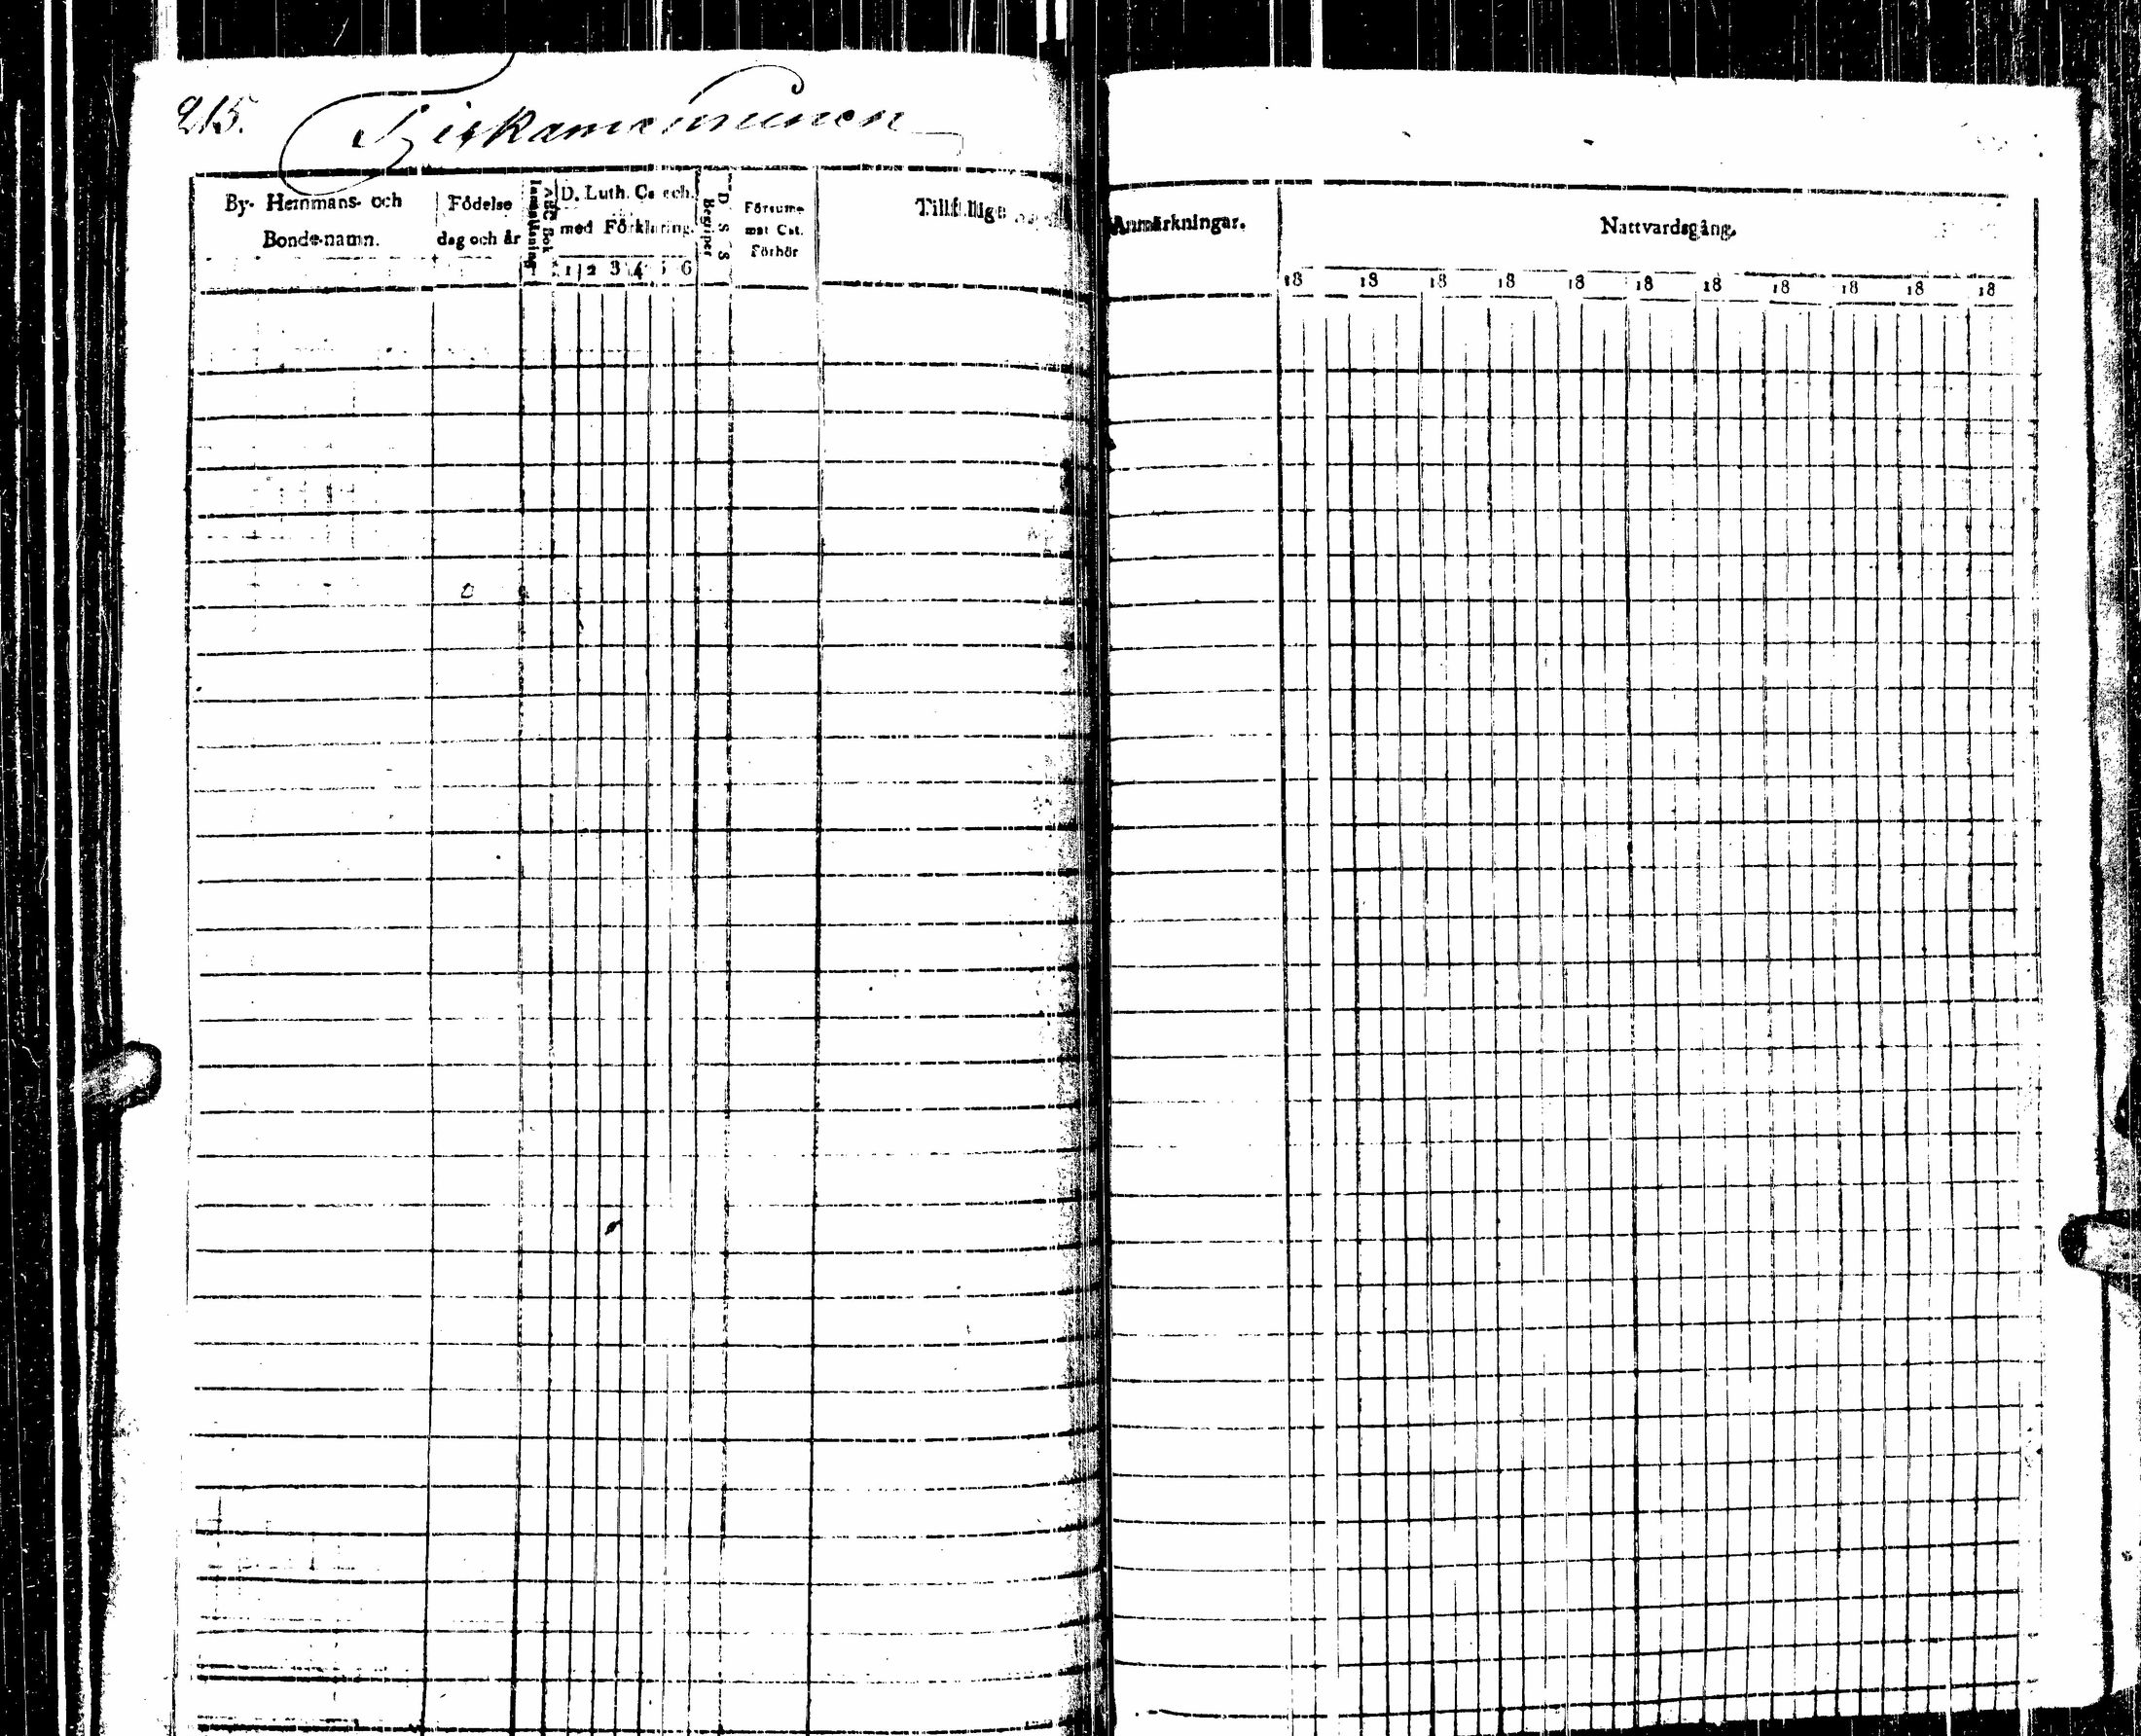 215.
By- Hemmans- och Bonde-namn.
Födelse dag och år
Innanläsning
ABC Bok
D. Luth. Catech. med Förklaring.
1 2 3 4 5 6
Begriper
D. S. S
Försummat Cat. Förhör
Tillfällige Anmärkningar.
Nattvardsgång.
18 18 18 18 18 18 18 18 18 18 18